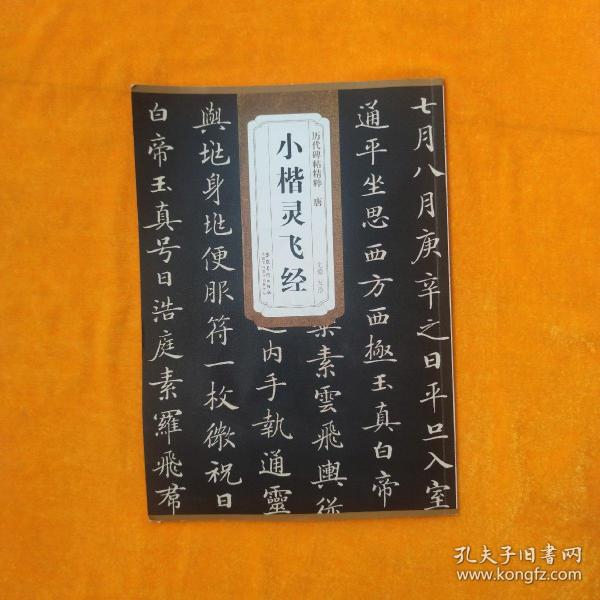 七月八月庚辛之日平旦入室
通平坐思西方西極玉真白帝
素雲飛輿從
内手執通靈
與坐身坐便服符一枚微祝日
白帝玉真号日浩庭素羅飛席
历代碑帖精粹 唐
小楷灵飞经
孔夫子旧书网
www.kongfz.com